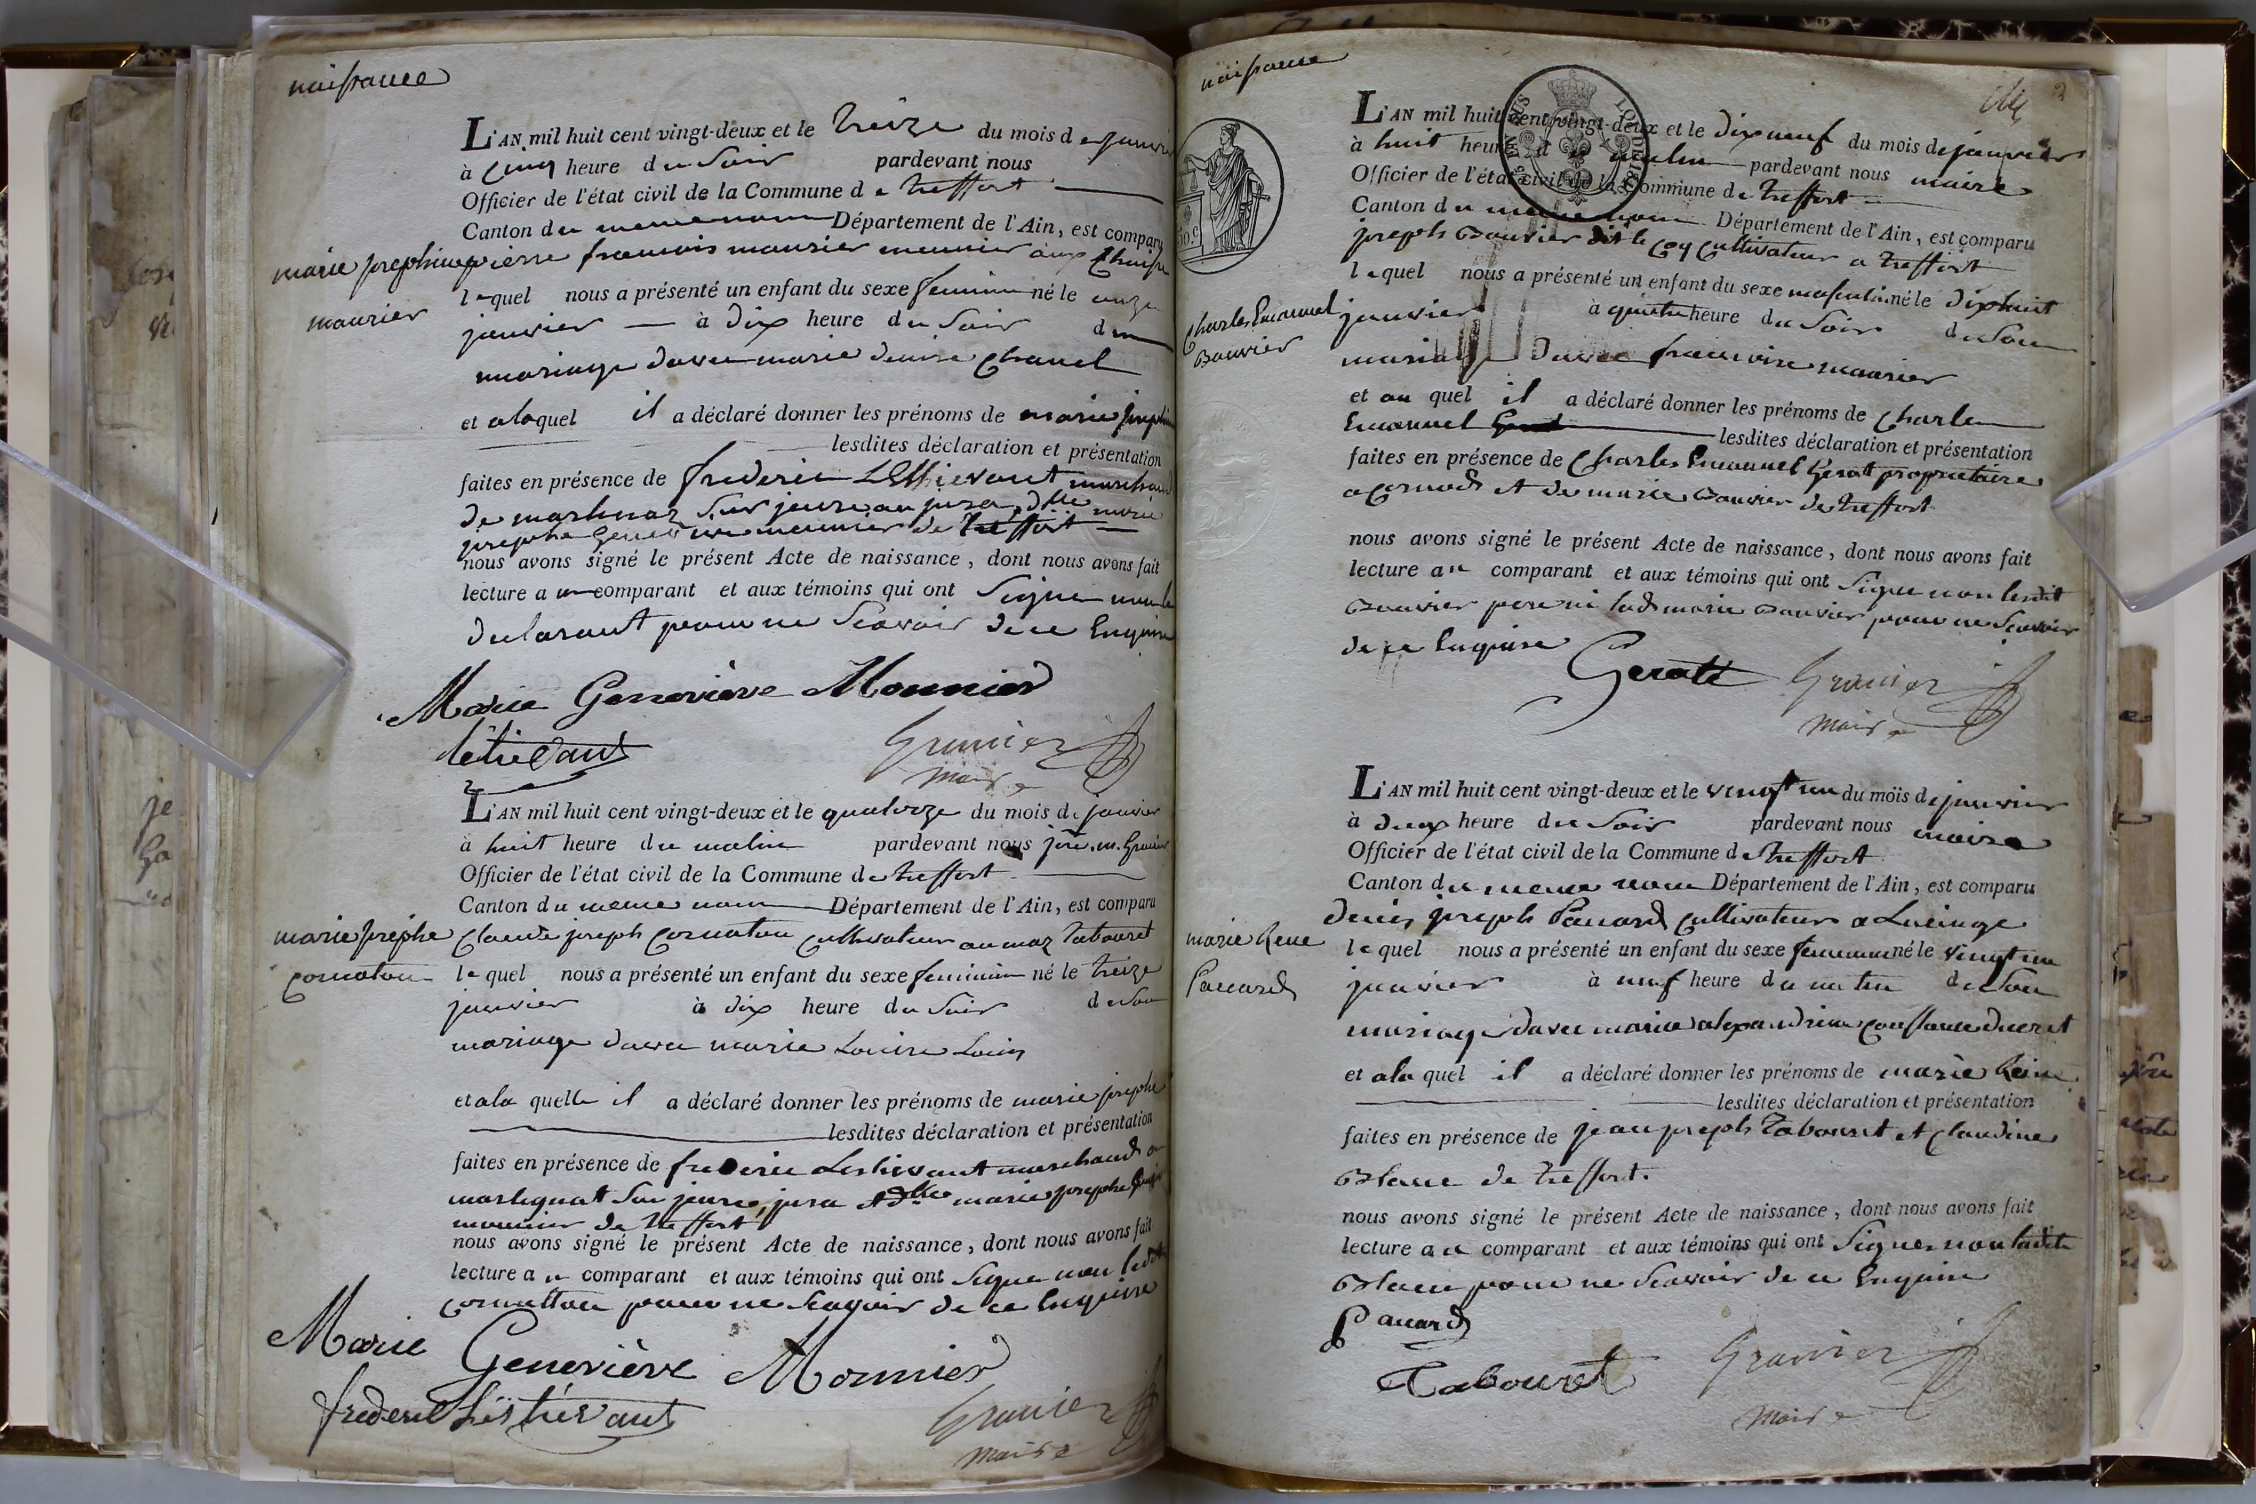 naissance
L'AN mil huit cent vingt-deux et le treize du mois de janvier
à cinq heure du soir pardevant nous
Officier de l'état civil de la Commune de treffort
Canton du meme nom Département de l'Ain, est comparu
marie josephine
maurier
pierre francois maurier meunier aux
lequel nous a présenté un enfant du sexe feminin né le onze
janvier à dix heure du soir d un
mariage davec marie denise chanel
et alaquel il a déclaré donner les prénoms de marie josephine
lesdites déclaration et présentation
faites en présence de frederic Lethievant marchand
de martinaz sur jeure au jura, dlle marie
josephe genevieve meunier de treffort
nous avons signé le présent Acte de naissance, dont nous avons fait
lecture a un comparant et aux témoins qui ont signe non le
declarant pour ne scavoir de ce enquire
Marie Geneviève Monnier
létievant
Granier
maire
L'AN mil huit cent vingt-deux et le quatorze du mois de janvier
à huit heure du matin pardevant nous jph. m. Granier
Officier de l'état civil de la Commune de treffort
Canton du meme nom Département de l'Ain, est comparu
marie josephe
cornaton
Claude joseph cornaton cultivateur au maz tabouret
lequel nous a présenté un enfant du sexe feminin né le treize
janvier à dix heure du soir de son
mariage davec marie Louise Louis
et ala quelle il a déclaré donner les prénoms de marie josephe
lesdites déclaration et présentation
faites en présence de frederic Lestievant marchand a
martignat sur jeure, jura et dlle marie josephe
mounier de treffort
nous avons signé le présent Acte de naissance, dont nous avons fait
lecture au comparant et aux témoins qui ont signe non ledit
cornatton pour ne scavoir de ce enquire
Marie Geneviève Monnier
frederic Lestiévant
Granier
maire
naissance
2
L'AN mil huit cent vingt-deux et le dix neuf du mois de janvier
à huit heure du matin pardevant nous maire
Officier de l'état civil de la Commune de treffort
Canton du meme nom Département de l'Ain, est comparu
joseph Bouvier dit le coq cultivateur a treffort
lequel nous a présenté un enfant du sexe masculin né le dix huit
Charles Emanuel
Bouvier
janvier à quatre heure du soir de son
mariage davec francoise maurier
et au quel il a déclaré donner les prénoms de Charles
Emanuel
lesdites déclaration et présentation
faites en présence de Charles Emanuel Geratt proprietaire
a cormod et de marie Bouvier de treffort
nous avons signé le présent Acte de naissance, dont nous avons fait
lecture au comparant et aux témoins qui ont signe non lesdit
Bouvier pere ni lad marie Bouvier pour ne scavoir
de ce enquire
Geratt
Granier
maire
L'AN mil huit cent vingt-deux et le vingt un du mois de janvier
à deux heure du soir pardevant nous maire
Officier de l'état civil de la Commune de treffort
Canton du meme nom Département de l'Ain, est comparu
denis joseph Panard cultivateur a Lucinge
marie Rene
Panard
lequel nous a présenté un enfant du sexe feminin né le vingt un
janvier à neuf heure du matin de son
mariage davec marie alexandrine constance ducret
et ala quel il a déclaré donner les prénoms de marie Reine
lesdites déclaration et présentation
faites en présence de jean joseph Tabouret et Claudine
Blanc de treffort.
nous avons signé le présent Acte de naissance, dont nous avons fait
lecture au comparant et aux témoins qui ont signes non ladite
Blanc pour ne scavoir de ce enquire
Panard
Tabouret
Granier
maire